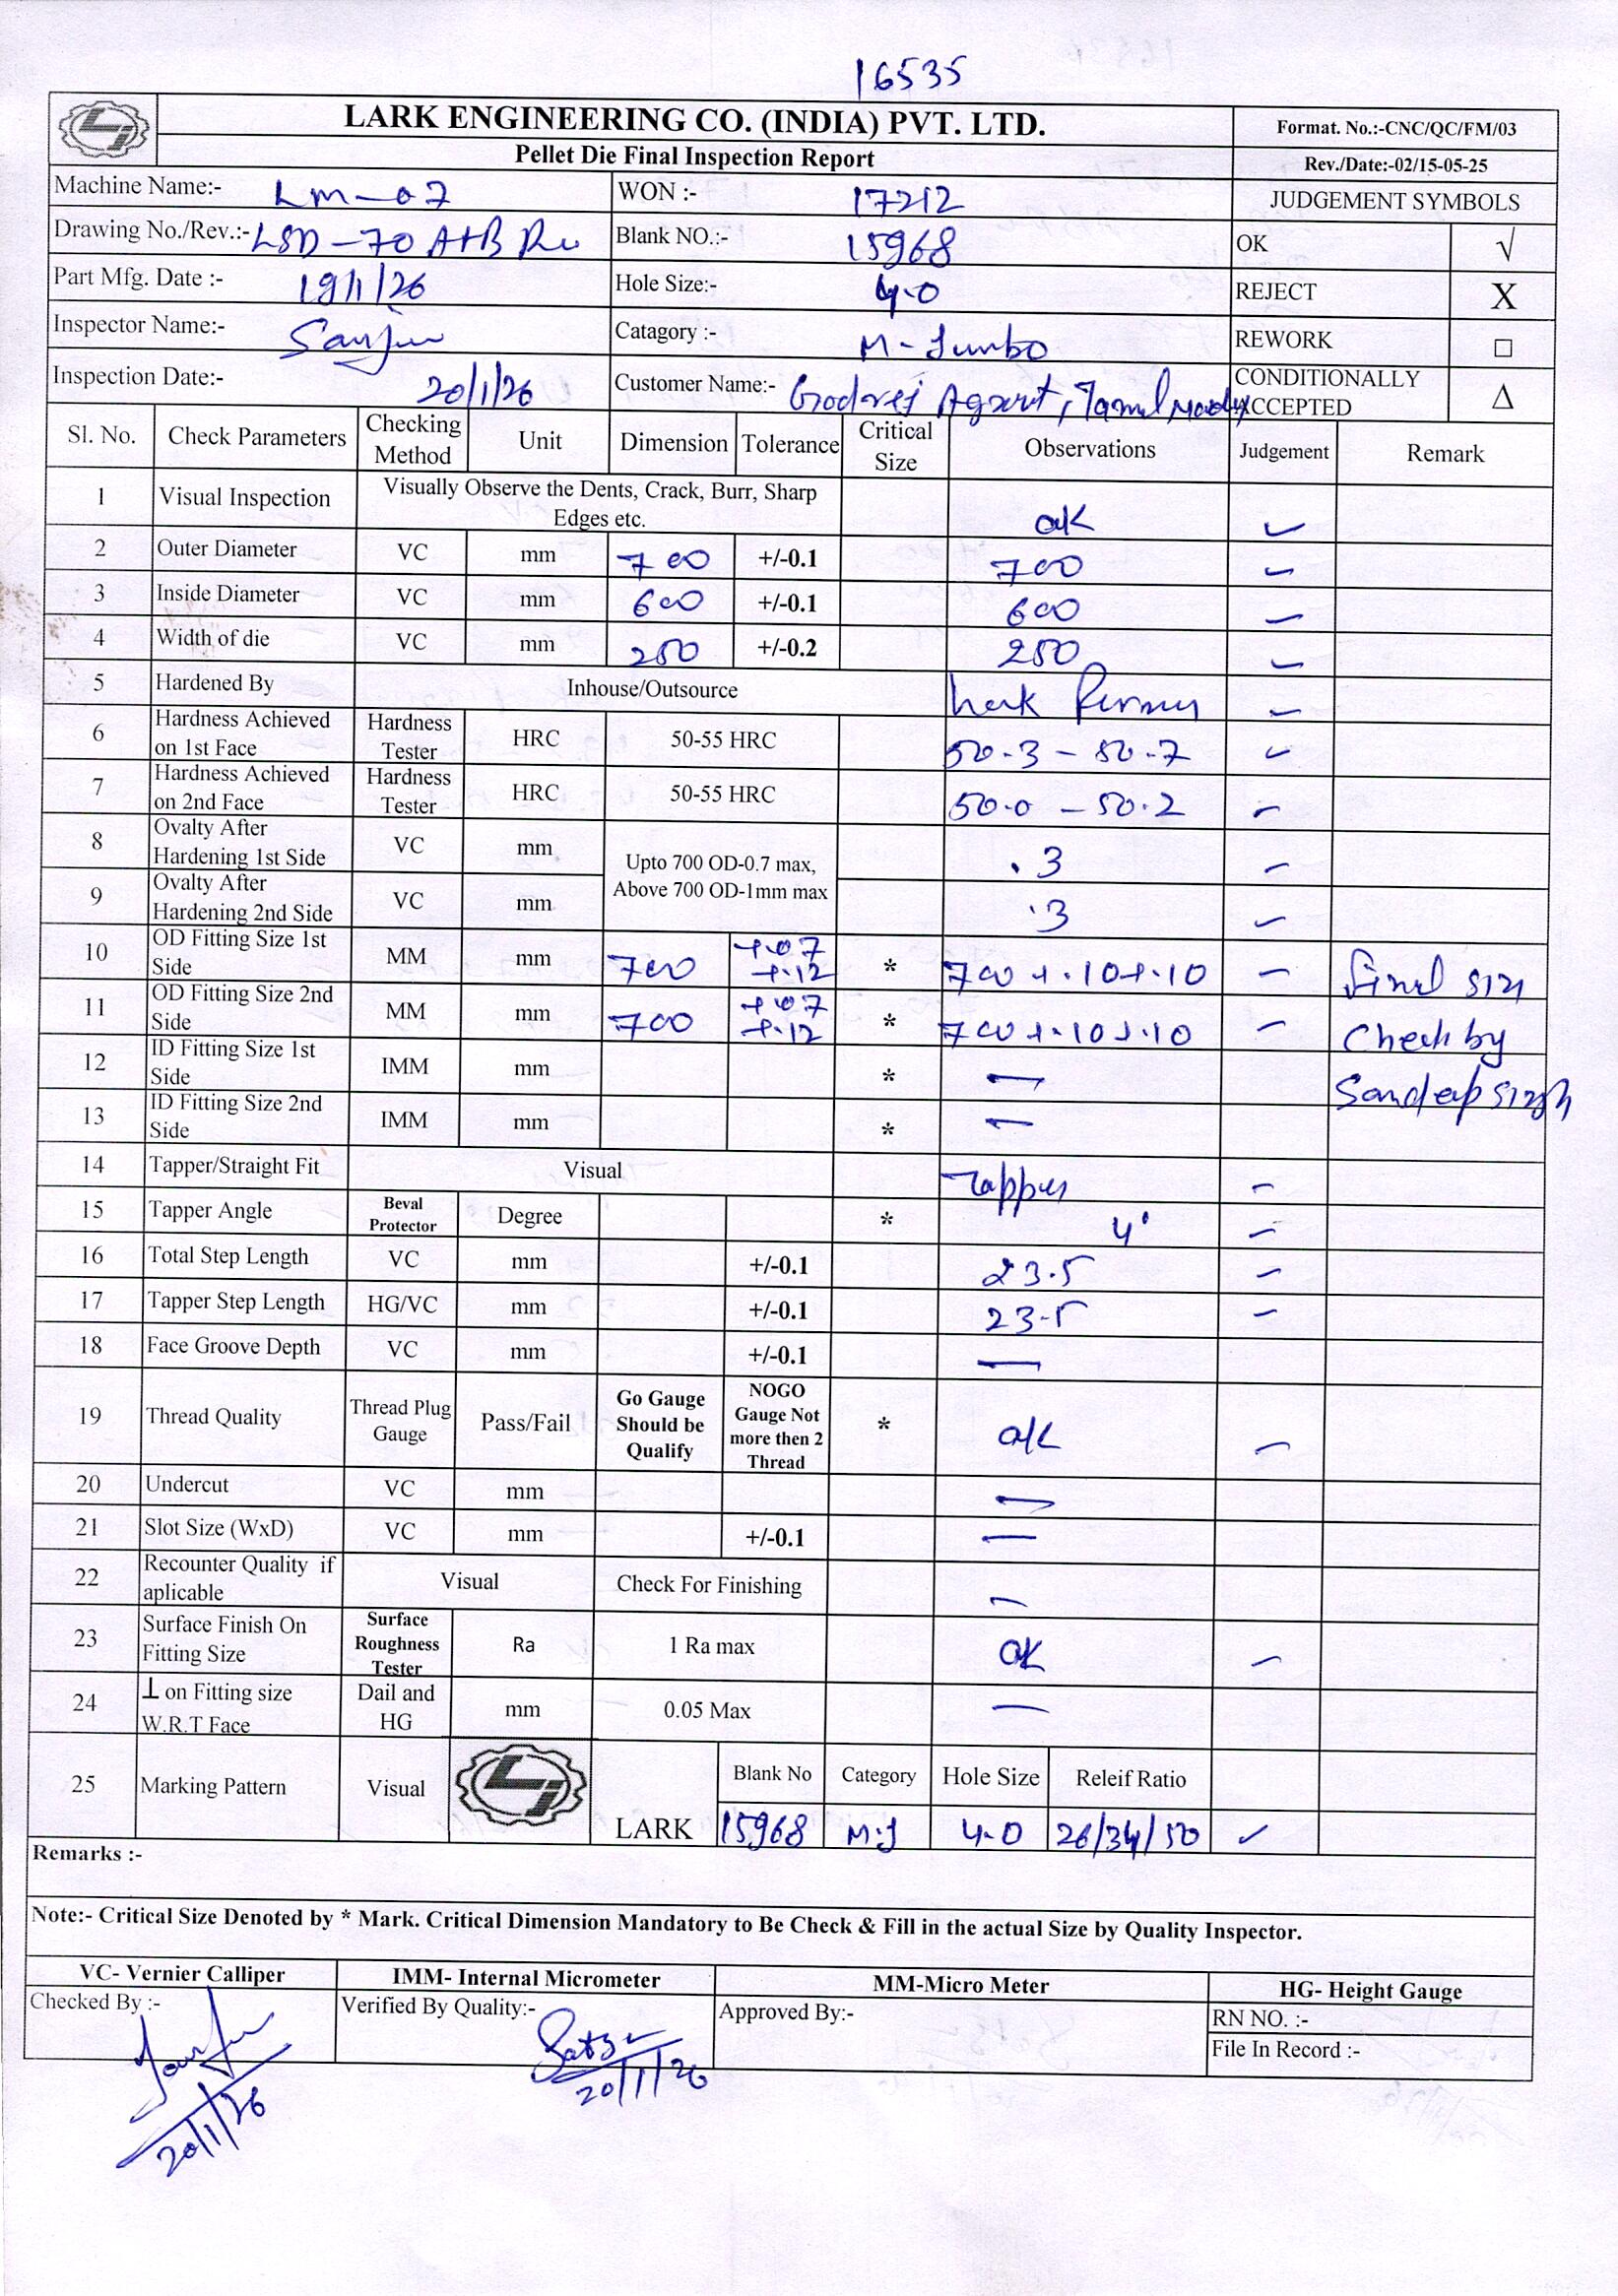 16535
LARK ENGINEERING CO. (INDIA) PVT. LTD.
Format. No.:-CNC/QC/FM/03
Pellet Die Final Inspection Report
Rev./Date:-02/15-05-25
Machine Name:- Lm-07 WON :- 17212 JUDGEMENT SYMBOLS
Drawing No./Rev.:- LSD-70 A+B Blank NO.:- 15968 OK √
Part Mfg. Date :- 19/1/26 Hole Size:- 4.0 REJECT X
Inspector Name:- Sanju Catagory :- M-Jumbo REWORK □
Inspection Date:- 20/1/26 Customer Name:- Godrej Agrovet, Tamil Nadu CONDITIONALLY ACCEPTED Δ
Sl. No. Check Parameters Checking Method Unit Dimension Tolerance Critical Size Observations Judgement Remark
1 Visual Inspection Visually Observe the Dents, Crack, Burr, Sharp Edges etc. ok ✓
2 Outer Diameter VC mm 700 +/-0.1 700 ✓
3 Inside Diameter VC mm 600 +/-0.1 600 ✓
4 Width of die VC mm 250 +/-0.2 250 ✓
5 Hardened By Inhouse/Outsource Lark ✓
6 Hardness Achieved on 1st Face Hardness Tester HRC 50-55 HRC 50.3 - 50.7 ✓
7 Hardness Achieved on 2nd Face Hardness Tester HRC 50-55 HRC 50.0 - 50.2 ✓
8 Ovalty After Hardening 1st Side VC mm Upto 700 OD-0.7 max, Above 700 OD-1mm max .3 ✓
9 Ovalty After Hardening 2nd Side VC mm .3 ✓
10 OD Fitting Size 1st Side MM mm 700 +.07 +.12 * 700 +.10+.10 ✓ Final size
11 OD Fitting Size 2nd Side MM mm 700 +.07 +.12 * 700 +.10+.10 ✓ Check by
12 ID Fitting Size 1st Side IMM mm * — Sandeep Singh
13 ID Fitting Size 2nd Side IMM mm * —
14 Tapper/Straight Fit Visual Tapper ✓
15 Tapper Angle Beval Protector Degree * 4° ✓
16 Total Step Length VC mm +/-0.1 23.5 ✓
17 Tapper Step Length HG/VC mm +/-0.1 23.5 ✓
18 Face Groove Depth VC mm +/-0.1 —
19 Thread Quality Thread Plug Gauge Pass/Fail Go Gauge Should be Qualify NOGO Gauge Not more then 2 Thread * ok ✓
20 Undercut VC mm —
21 Slot Size (WxD) VC mm +/-0.1 —
22 Recounter Quality if aplicable Visual Check For Finishing —
23 Surface Finish On Fitting Size Surface Roughness Tester Ra 1 Ra max ok ✓
24 ⊥ on Fitting size W.R.T Face Dail and HG mm 0.05 Max —
25 Marking Pattern Visual LARK Blank No Category Hole Size Releif Ratio
15968 M.J 4.0 26/34/50 ✓
Remarks :-
Note:- Critical Size Denoted by * Mark. Critical Dimension Mandatory to Be Check & Fill in the actual Size by Quality Inspector.
VC- Vernier Calliper IMM- Internal Micrometer MM-Micro Meter HG- Height Gauge
Checked By :- Verified By Quality:- Approved By:- RN NO. :-
File In Record :-
20/1/26 20/1/26